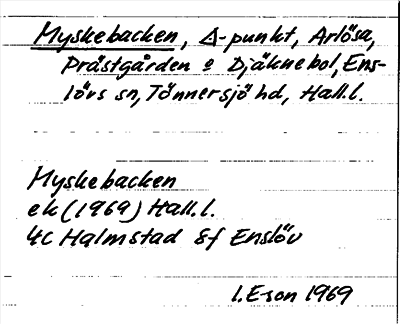 Myskebacken, △-punkt, Arlösa,
Prästgården o Djäknebol, Ens-
lövs sn, Tönnersjö hd, Hall.l.
Myskebacken
ek (1969) Hall.l.
4C Halmstad 8f Enslöv
I. E-son 1969